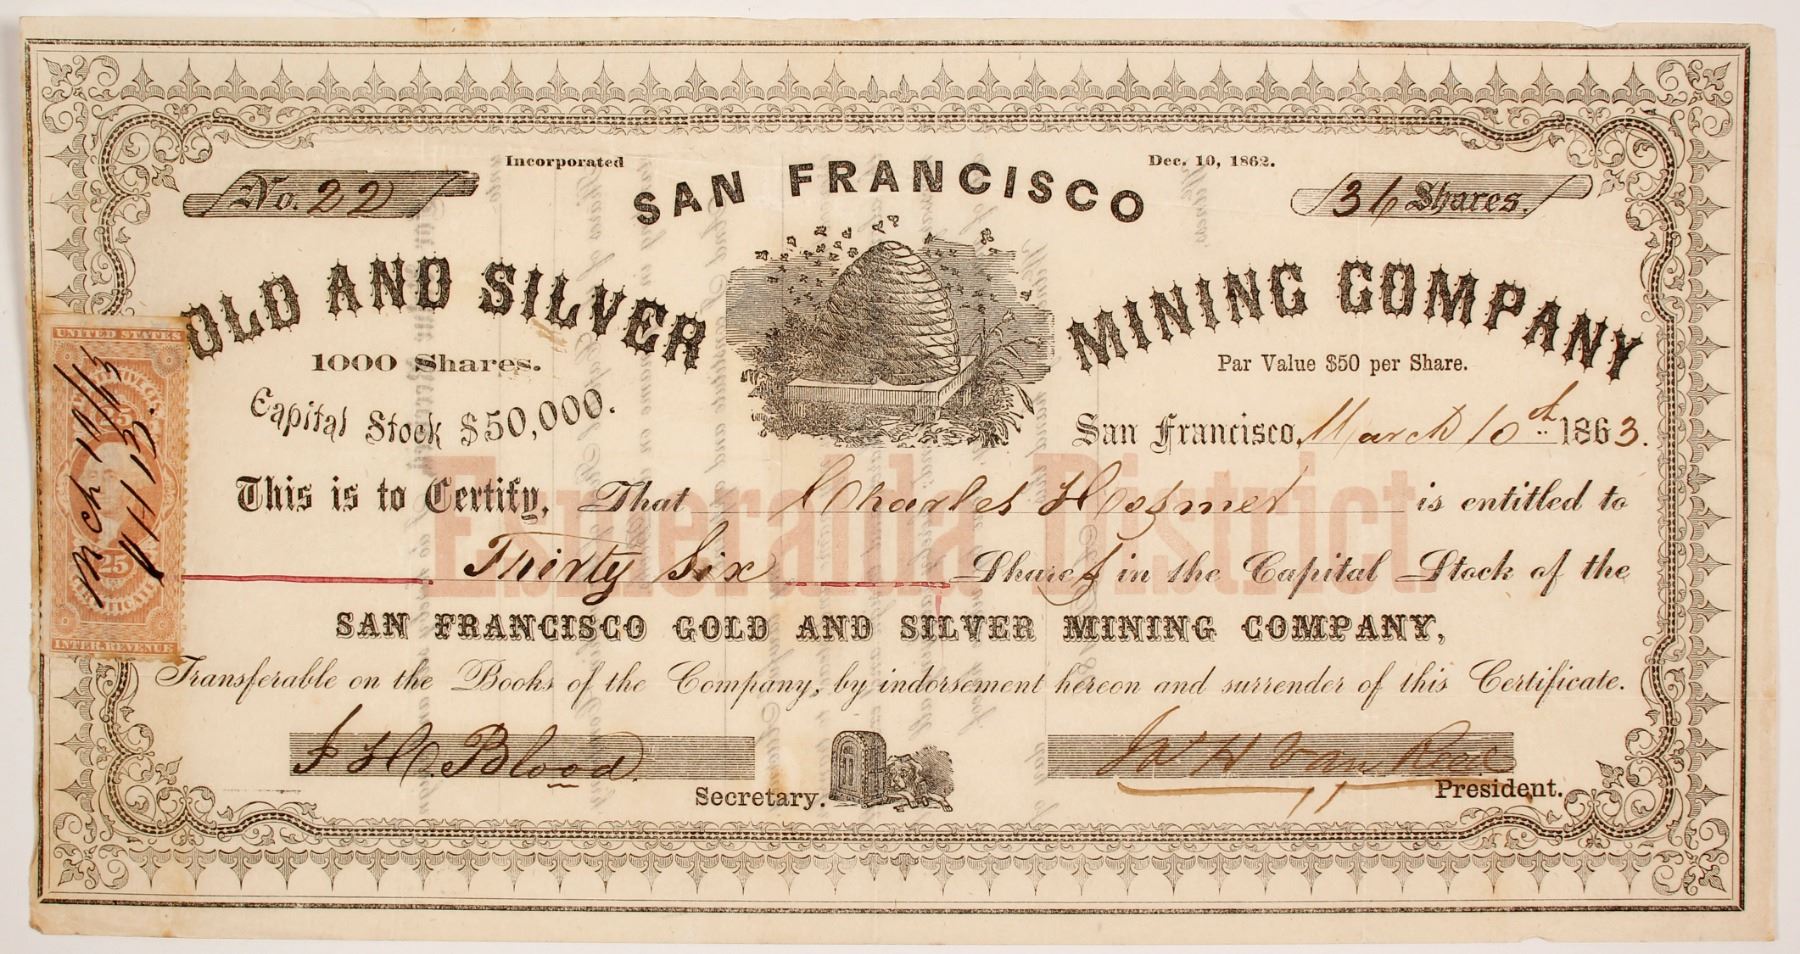 Incorporated Dec. 10, 1862.
No. 22
36 Shares.
SAN FRANCISCO
OLD AND SILVER MINING COMPANY
1000 Shares.
Par Value $50 per Share.
Capital Stock $50,000.
San Francisco, March 10th 1863.
Esmeralda District.
This is to Certify, That Charles Hosmer is entitled to
Thirty Six Shares in the Capital Stock of the
SAN FRANCISCO GOLD AND SILVER MINING COMPANY,
Transferable on the Books of the Company, by indorsement hereon and surrender of this Certificate.
J H Blood
Secretary.
President.
UNITED STATES
25
CERTIFICATE
INTER. REVENUE